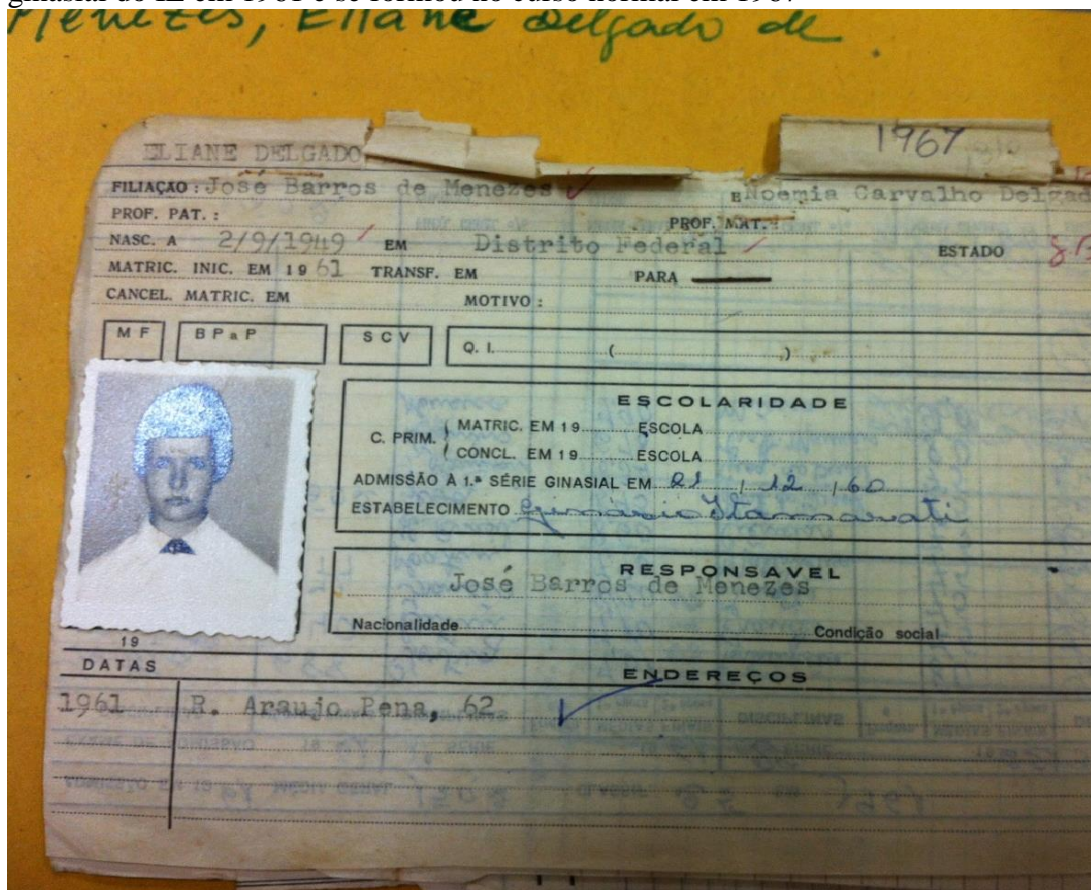 ginasial do IE em 1961 e se formou no curso normal em 1967
Menezes, Eliane Delgado de
1967
ELIANE DELGADO
FILIAÇÃO : José Barros de Menezes E Noemia Carvalho Delgad
PROF. PAT. : PROF. MAT. :
NASC. A 2/9/1949 EM Distrito Federal ESTADO
MATRIC. INIC. EM 19 61 TRANSF. EM PARA
CANCEL. MATRIC. EM MOTIVO :
M F B P a P S C V Q. I. ( )
ESCOLARIDADE
C. PRIM. MATRIC. EM 19 ESCOLA
CONCL. EM 19 ESCOLA
ADMISSÃO À 1.ª SÉRIE GINASIAL EM 21 / 12 / 60
ESTABELECIMENTO Ginásio Itamarati
RESPONSAVEL
José Barros de Menezes
Nacionalidade Condição social
19
DATAS ENDEREÇOS
1961 R. Araujo Pena, 62